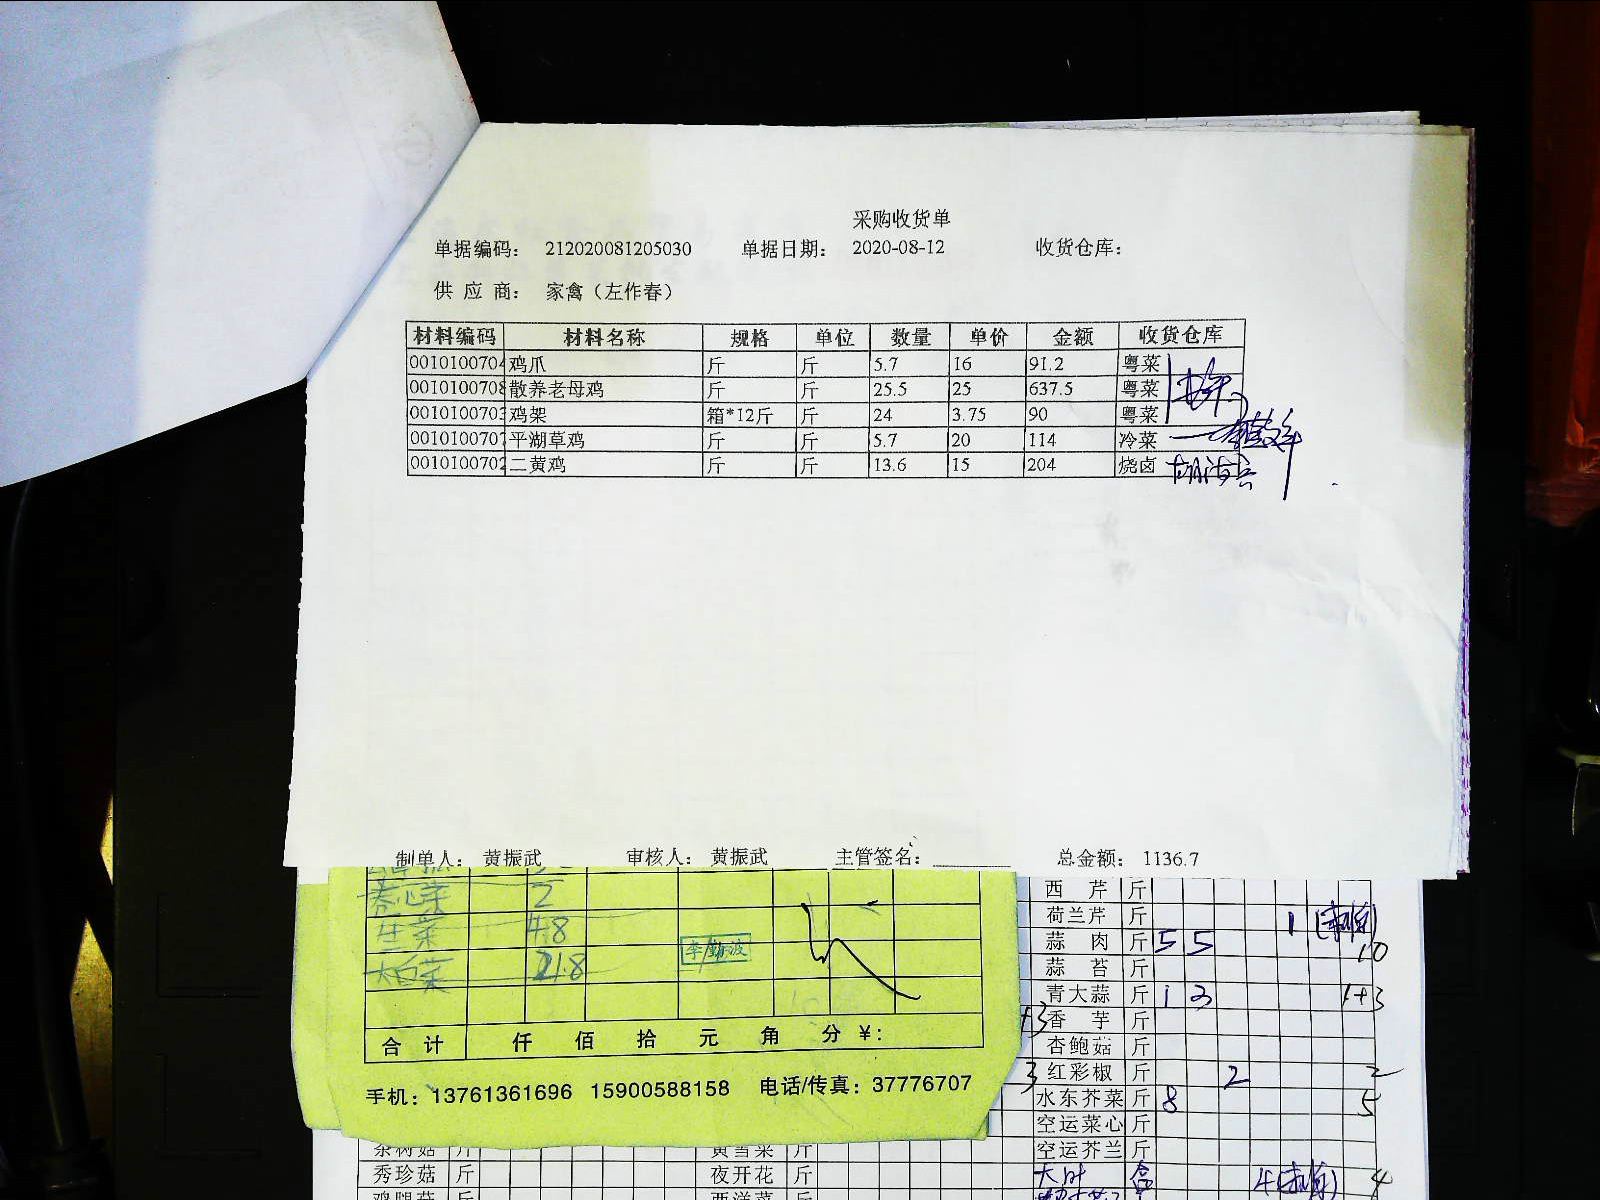 采购收货单
单据编码: 212020081205030 单据日期: 2020-08-12 收货仓库:
供 应 商: 家禽（左作春）
材料编码 材料名称 规格 单位 数量 单价 金额 收货仓库
0010100704 鸡爪 斤 斤 5.7 16 91.2 粤菜
0010100708 散养老母鸡 斤 斤 25.5 25 637.5 粤菜
0010100703 鸡架 箱*12斤 斤 24 3.75 90 粤菜
0010100707 平湖草鸡 斤 斤 5.7 20 114 冷菜
0010100702 二黄鸡 斤 斤 13.6 15 204 烧卤
制单人: 黄振武 审核人: 黄振武 主管签名: 总金额: 1136.7
卷心菜 2
生菜 4.8
大白菜 21.8
合 计 仟 佰 拾 元 角 分 ¥:
手机: 13761361696 15900588158 电话/传真: 37776707
西 芹 斤
荷兰芹 斤 1
蒜 肉 斤 5 5 10
蒜 苔 斤
青大蒜 斤 1 3 1+3
+3 香 芋 斤
杏鲍菇 斤
3 红彩椒 斤 2 2
水东芥菜 斤 8 5
空运菜心 斤
空运芥兰 斤
茶树菇 斤 黄当菜 斤
秀珍菇 斤 夜开花 斤
大叶 盒 4 4
鸡腿菇 斤 西洋菜 斤